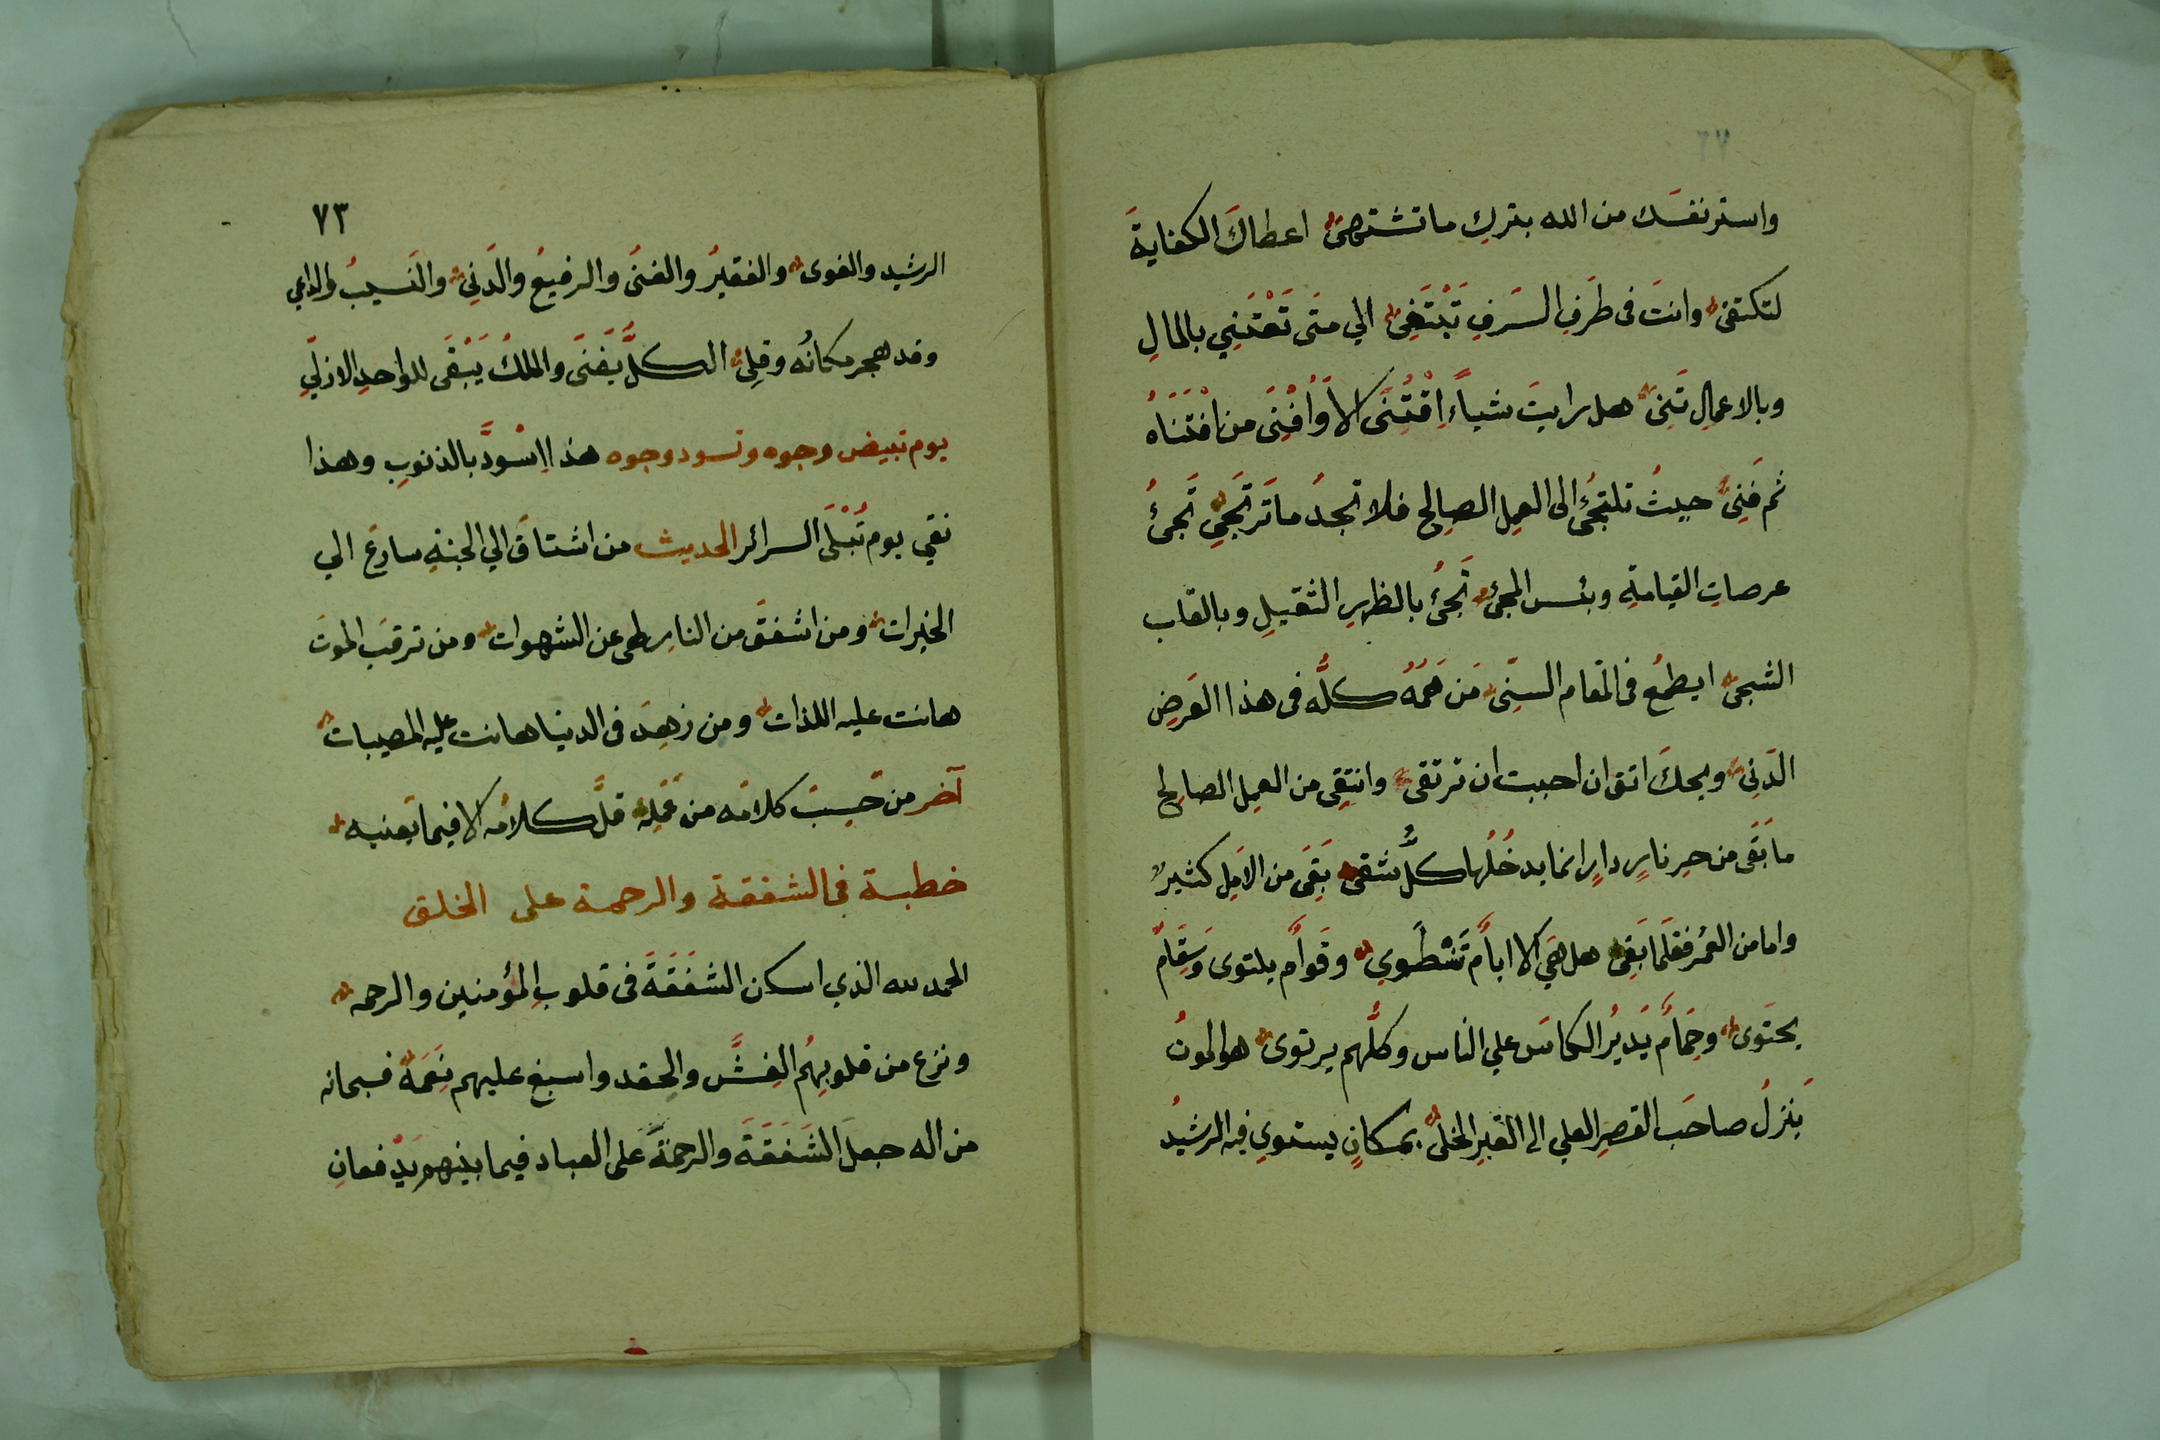 واستر نفسَك من الله بتركِ ما تشتهى اعطاكَ الكفايةَ
لتكتفى وانتَ فى طَرَفِ السَرفِ تَبْتَغِى الي متَى تَعْتَنِي بالمالِ
وبالاعمالِ تَنِى هل رايتَ شياءً اِقْتُنَى الا وَاُفْنِىَ من اقْتَنَاهُ
ثم فَنِىَ حيثُ تلتجئُ الى العملِ الصالحِ فلا تجدُ ما تَرتَجَىِ تَجئُ
عرصاتِ القيامةِ وبئس المجئ تَجئُ بالظهرِ الثقيلِ وبالقلب
الشجى ايطمعُ فى المقام السنِّى مَن هَمُهُ كلُّه فى هذا العَرضِ
الدَنِى ويحكَ اتق ان احببت ان ترتقى وانتقِى من العملِ الصالحِ
ما بَقَى من حرِ نارِ دارٍ انما يدخُلُها كلُّ شقى بَقِىَ من الاملِ كثيرٌ
واما من العُمُرِ فقلَما بَقِى هل هَي الا ايامٌ تَنْطَوي وقَوامٌ يلتوى وَسقَامٌ
يحتَوى وحِمَامٌ يَديرُ الكاسَ علي الناس وكلُّهم يرتوى هو الموتُ
يَنزلُ صاحَب القصِر العلي الى القبرِ الخلى بمكانٍ يستوي فيه الرشيدُ
٧٣
الرشيد والغوى والفقيرُ والغنُى والرفيعُ والدَنِى والنَسيبُ والداعي
وقد هجر مكانُه وقلِى الكلُّ يَفَنَى والملكُ يَبْقَى للواحدِ الازلّي
يوم تبيض وجوه وتسود وجوه هذا اِسْودَّ بالذنوبِ وهذا
نقي يوم تُبْلَى السرائر الحديث من اشتاقَ الي الجنةِ سارعَ الي
الخيرات ومن اشفقَ من النارِ لهى عن الشهوات ومن ترقبَ الموتَ
هانت عليه اللذات ومن زهِدَ فى الدنيا هانت عليه المصيبات
آخر من حَسِبَ كلامَه من عَمَلِه قلَّ كلامُه الا فيما يَعنيه
خطبة في الشفقة والرحمة على الخلق
الحمد لله الذي اسكن الشَفَقَةَ فى قلوبِ المؤمنين والرحمه
ونزع من قلوبِهُم الغِشَّ والحقد واسبغ عليهم نِعَمَهُ فسبحانه
من اله جعلَ الشَفَقَةَ والرحمةَ على العباد فيما بينهم يَدْفعانِ